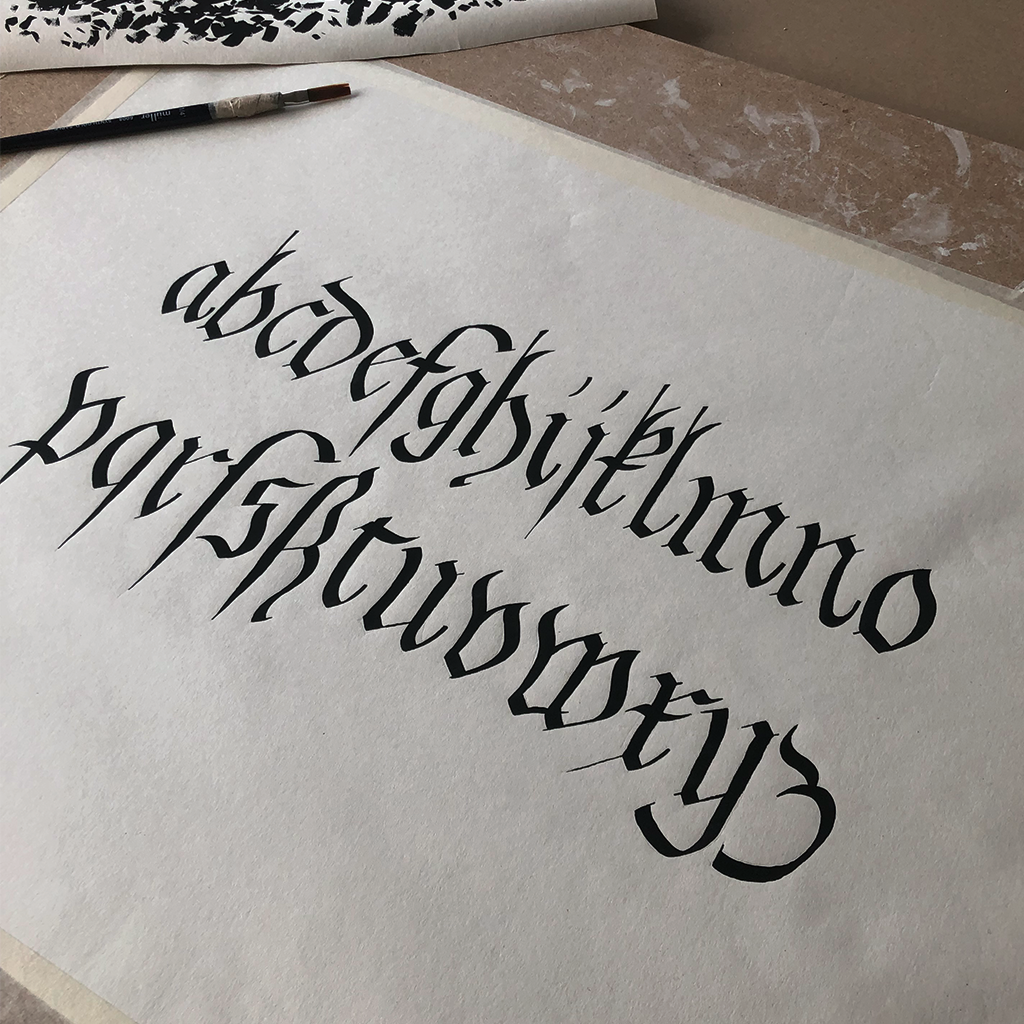 abcdefghijklmno
pqrſsßtuvwxyz